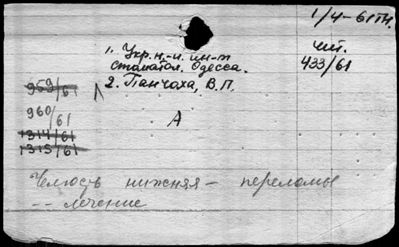 1/4-61тн.
1. Укр. н.-и. ин-т
стоматол. Одесса.
2. Панчоха, В.П.
чит.
433/61
959/61
Л
960/61
1314/61
1315/61
А
Челюсть нижняя - переломы
-- лечение